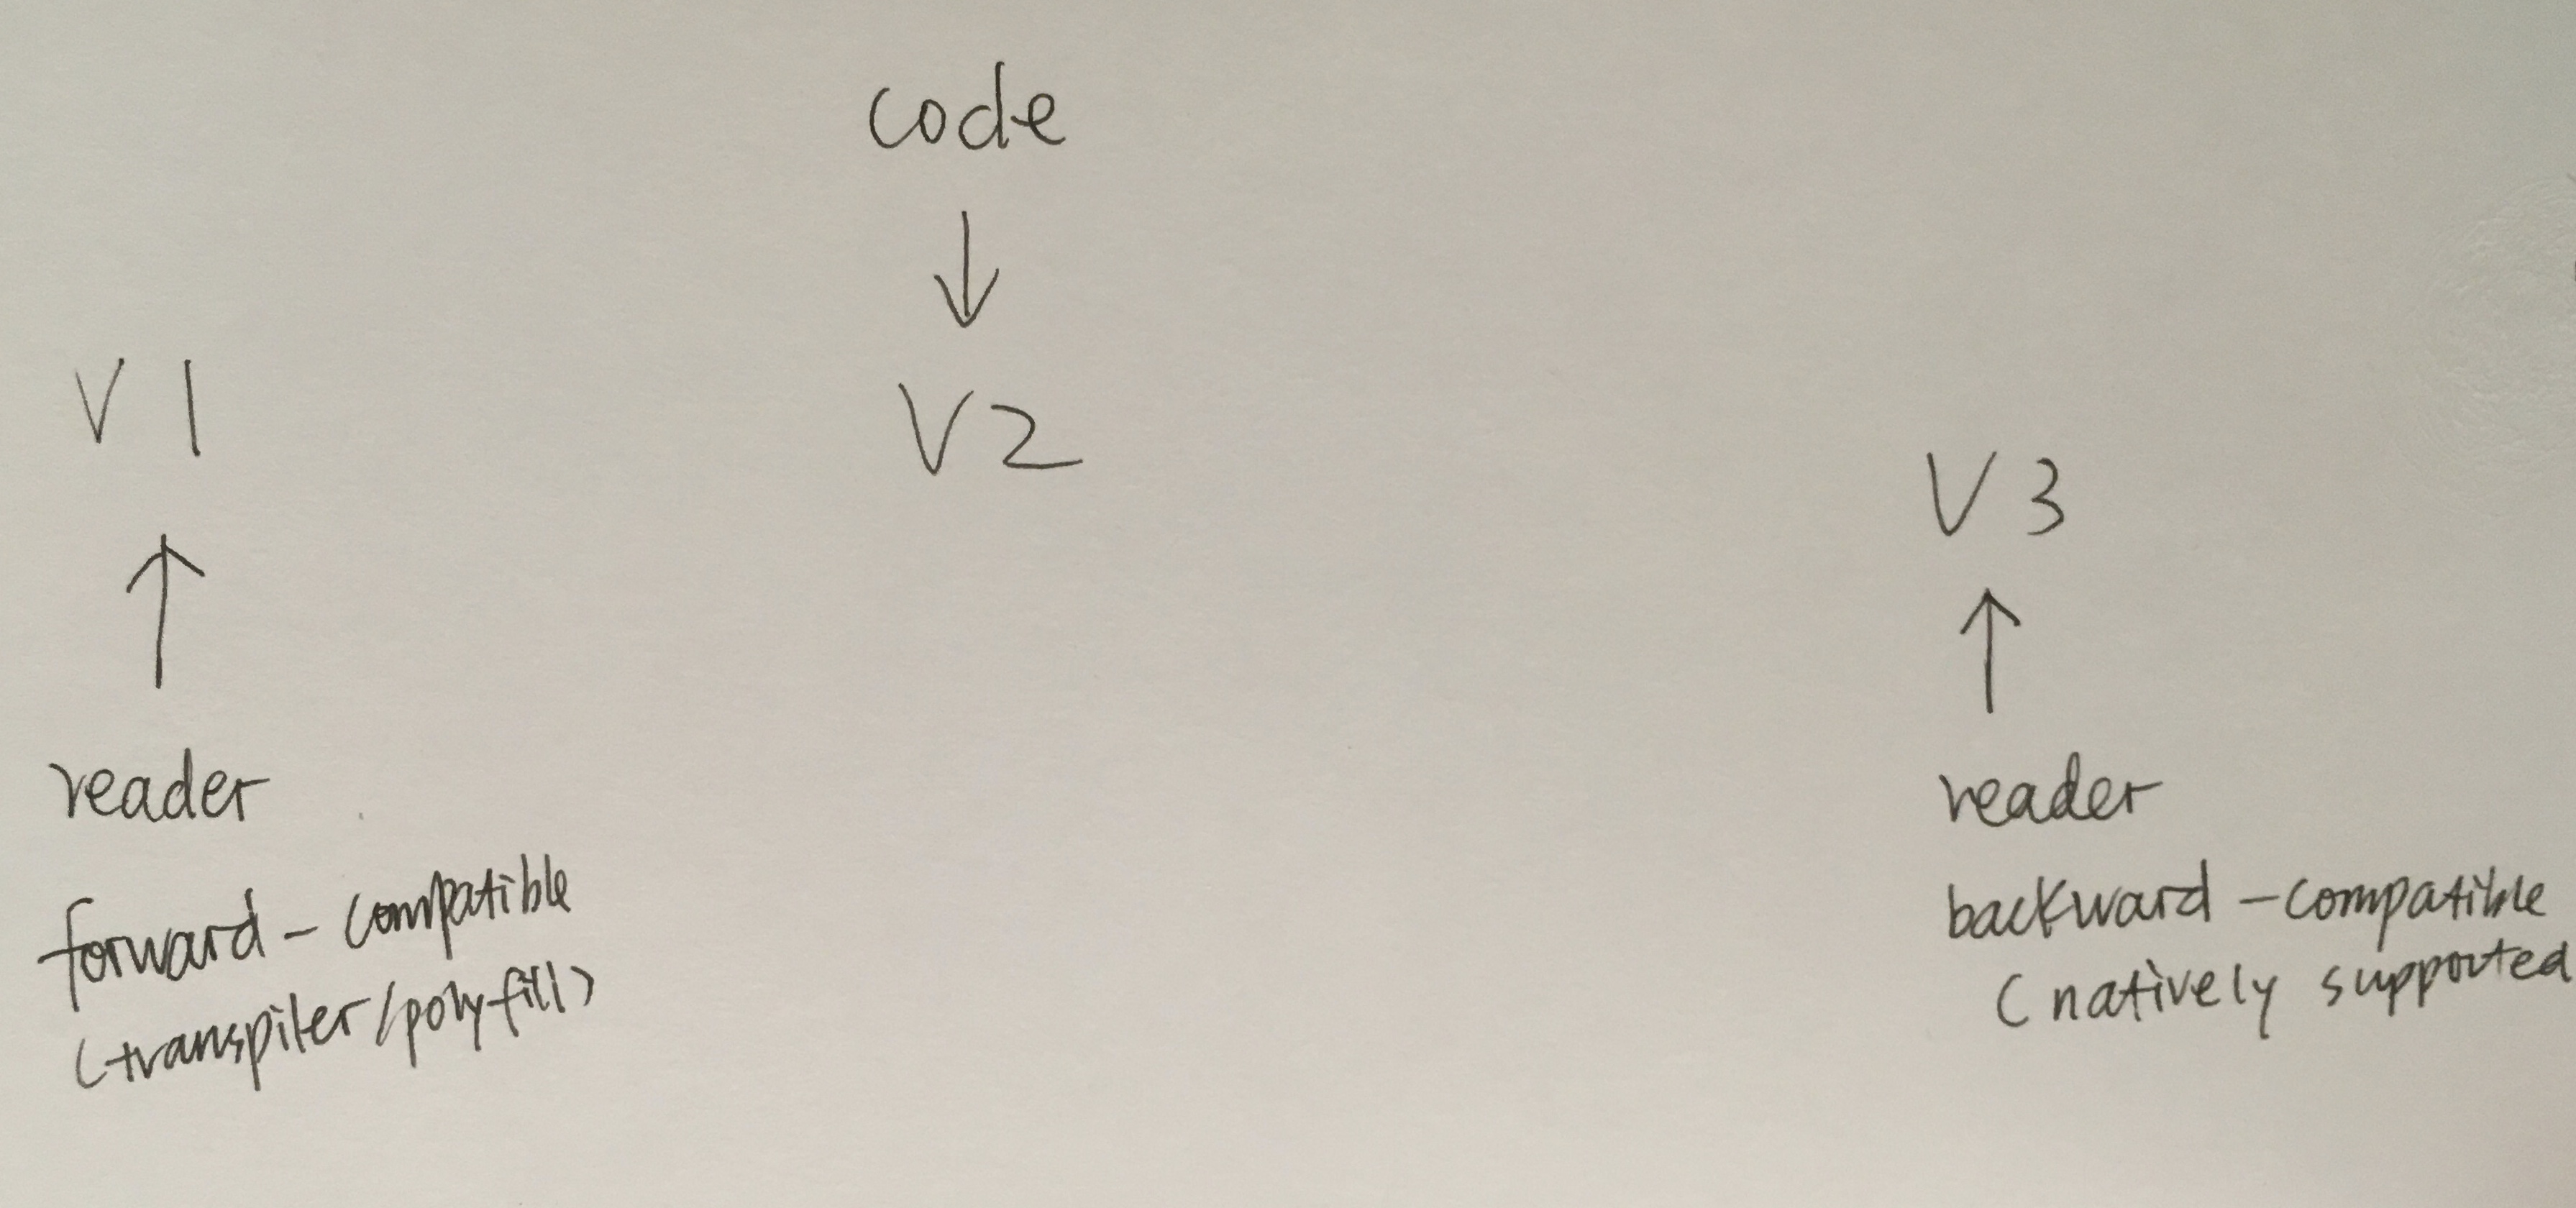 code
V1
V2
V3
reader
forward-compatible
(transpiler/polyfill)
reader
backward-compatible
(natively supported